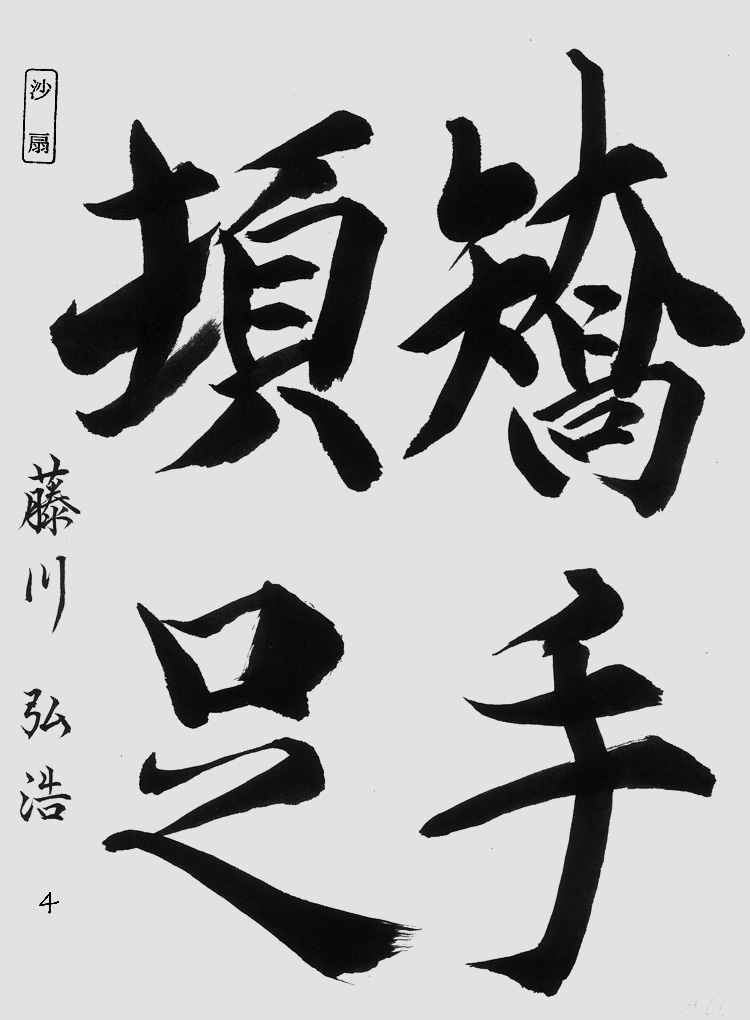 矯手
頓足
沙扇
藤川 弘浩 4